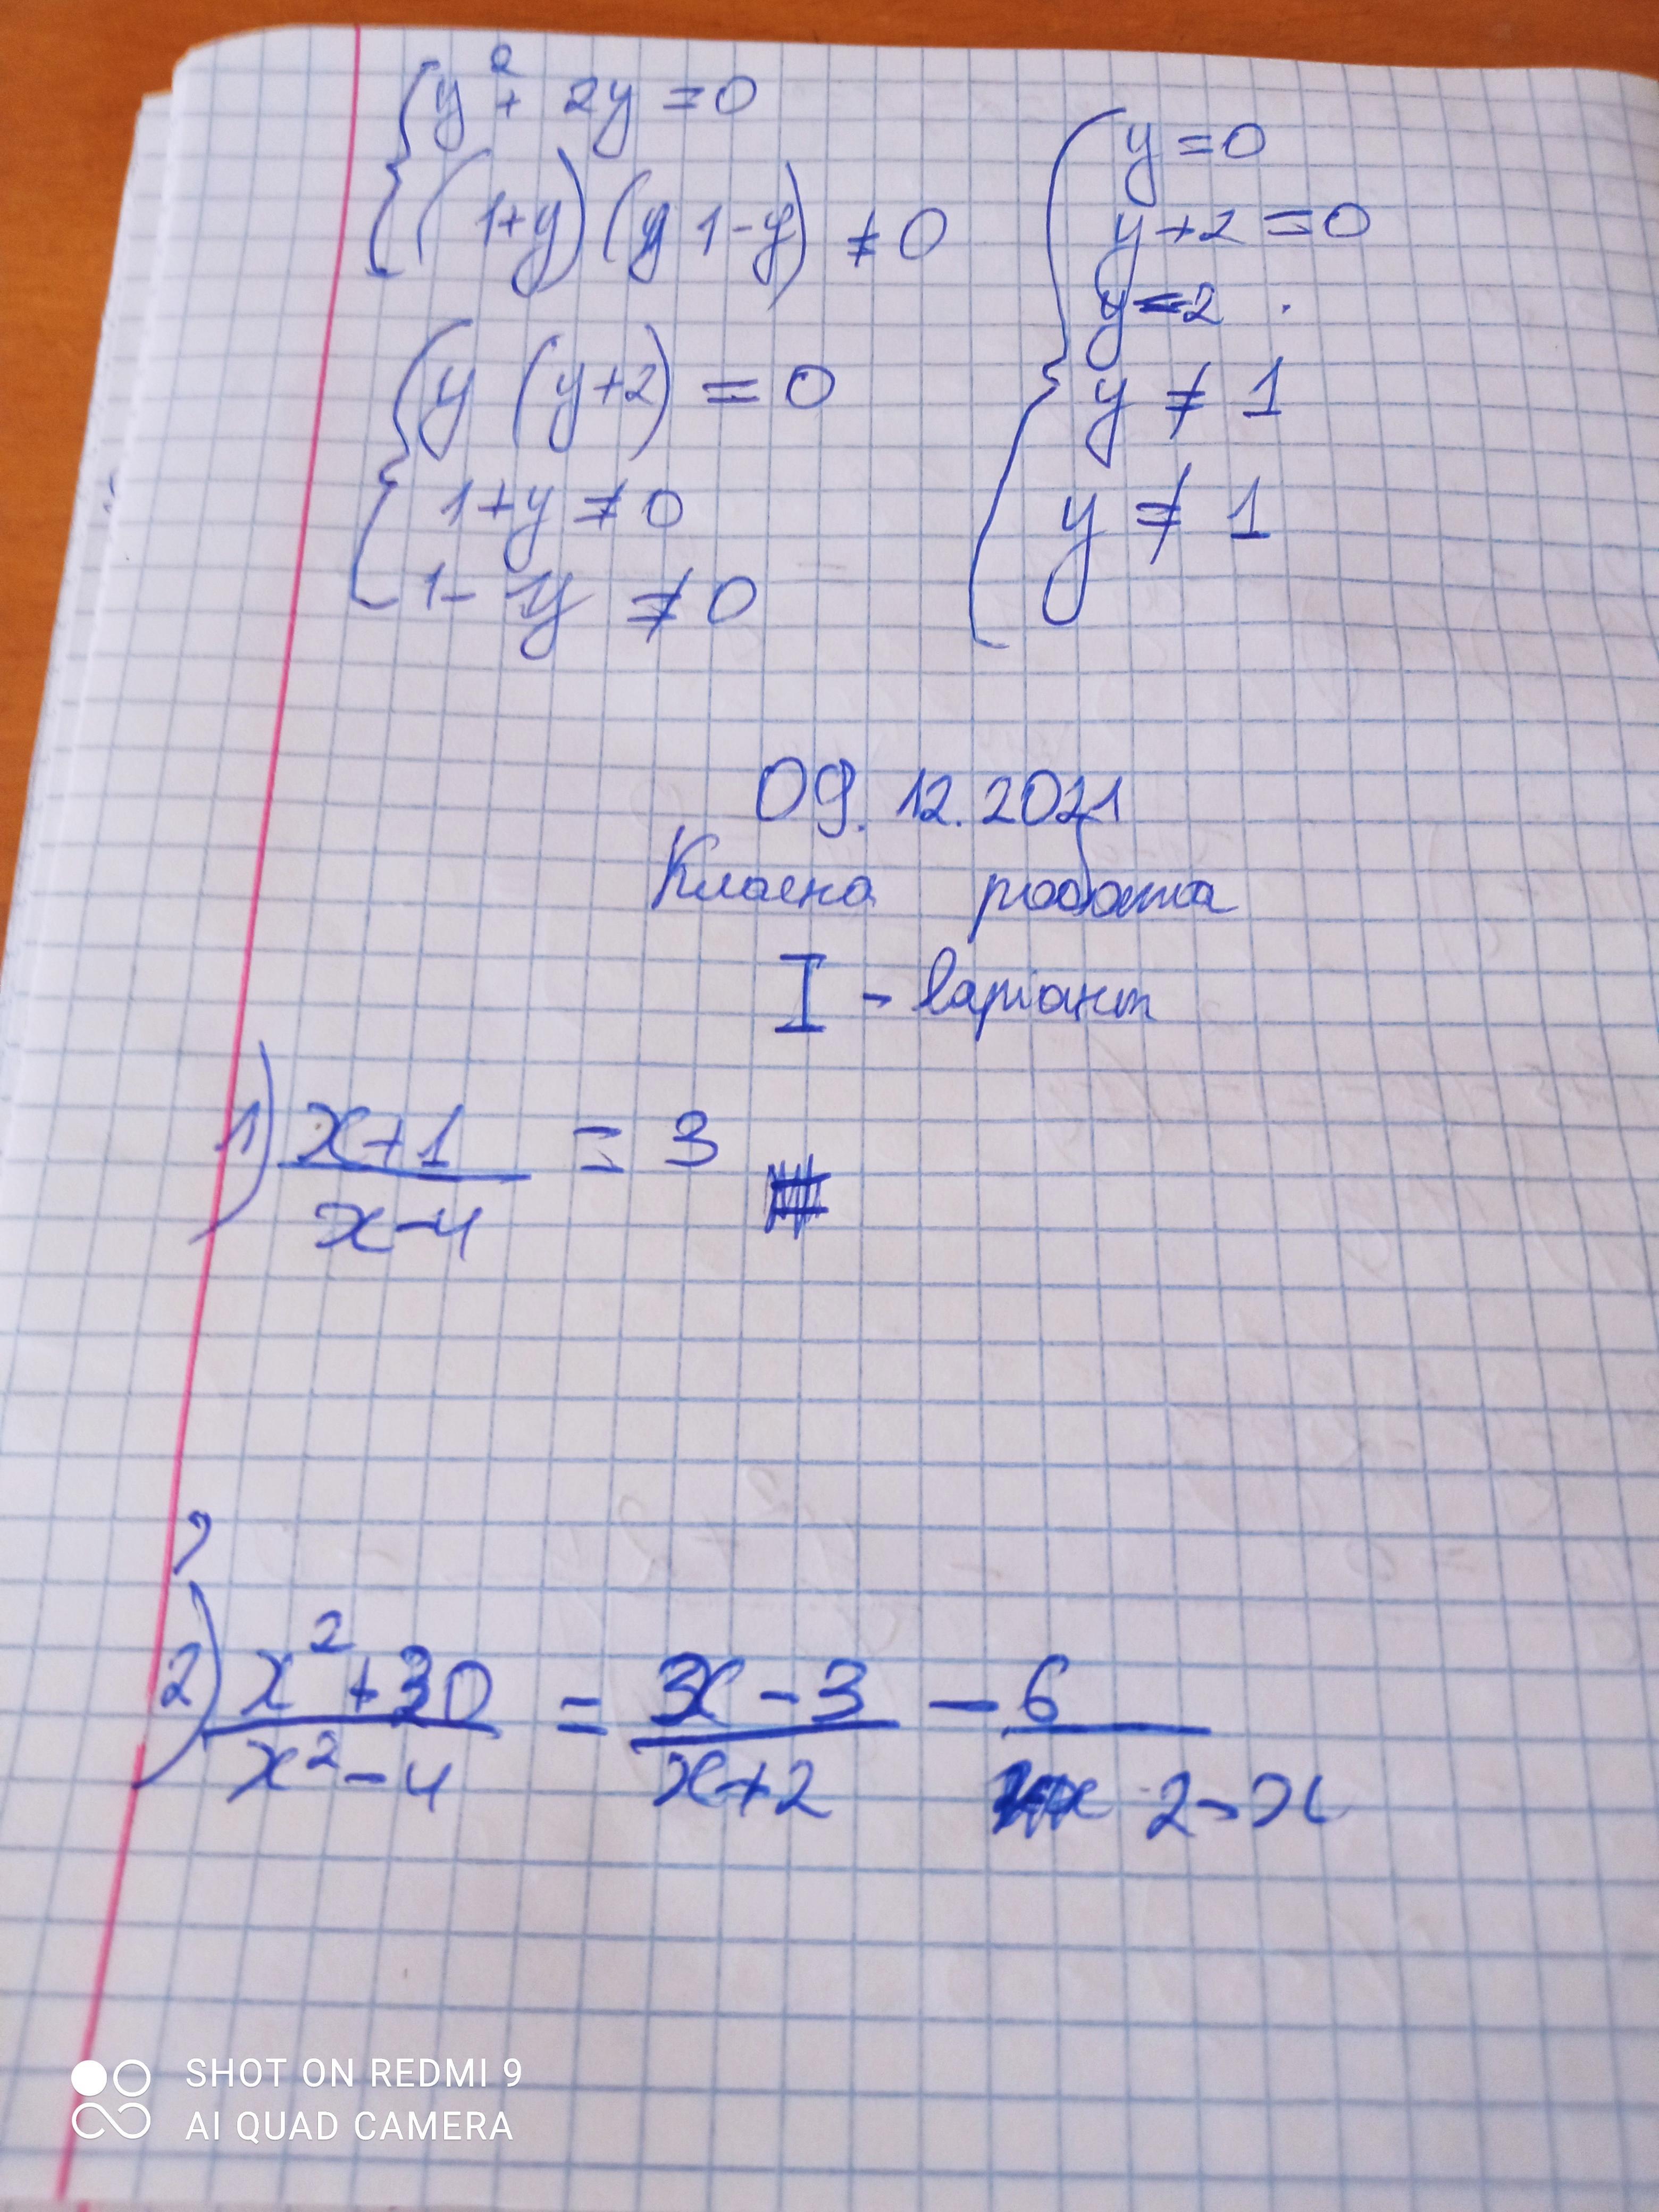 y² + 2y = 0
(1+y)(y 1-y) ≠ 0
y (y+2) = 0
1+y ≠ 0
1- y ≠ 0
y = 0
y+2 = 0
y=-2
y ≠ 1
y ≠ 1
09.12.2021
Класна робота
I - варіант
1) x+1 / x-4 = 3
2) x²+30 / x²-4 = 3x-3 / x+2 - 6 / 2-x
SHOT ON REDMI 9
AI QUAD CAMERA